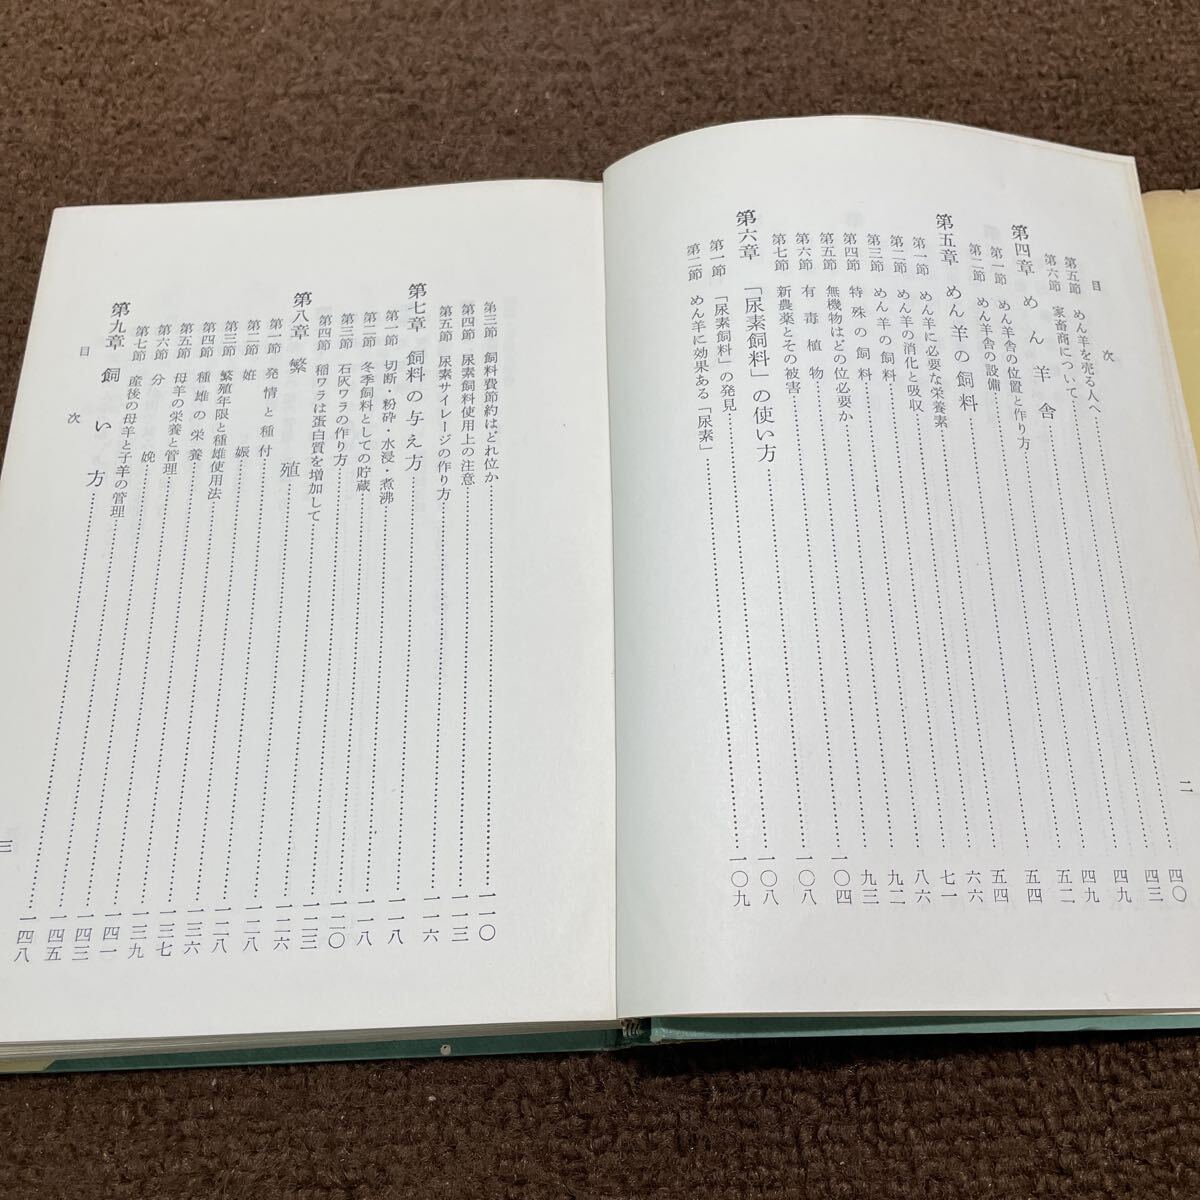 目次
二
第五節 めん羊を売る人へ……四〇
第六節 家畜商について……四三
第四章 めん羊舎……四九
第一節 めん羊舎の位置と作り方……四九
第二節 めん羊舎の設備……五二
第五章 めん羊の飼料……五四
第一節 めん羊に必要な栄養素……五四
第二節 めん羊の消化と吸収……六六
第三節 めん羊の飼料……七一
第四節 特殊の飼料……八六
第五節 無機物はどの位必要か……九二
第六節 有毒植物……九三
第七節 新農薬とその被害……一〇四
第六章 「尿素飼料」の使い方……一〇八
第一節 「尿素飼料」の発見……一〇八
第二節 めん羊に効果ある「尿素」……一〇九
第三節 飼料費節約はどれ位か……一一〇
第四節 尿素飼料使用上の注意……一一三
第五節 尿素サイレージの作り方……一一六
第七章 飼料の与え方……一一八
第一節 切断・粉砕・水浸・煮沸……一一八
第二節 冬季飼料としての貯蔵……一二〇
第三節 石灰ワラの作り方……一二三
第四節 稲ワラは蛋白質を増加して……一二六
第八章 繁殖……一二八
第一節 発情と種付……一二八
第二節 妊娠……一三六
第三節 繁殖年限と種雄使用法……一三七
第四節 種雄の栄養……一三九
第五節 母羊の栄養と管理……一四一
第六節 分娩……一四三
第七節 産後の母羊と子羊の管理……一四五
第九章 飼い方……一四八
目次
三